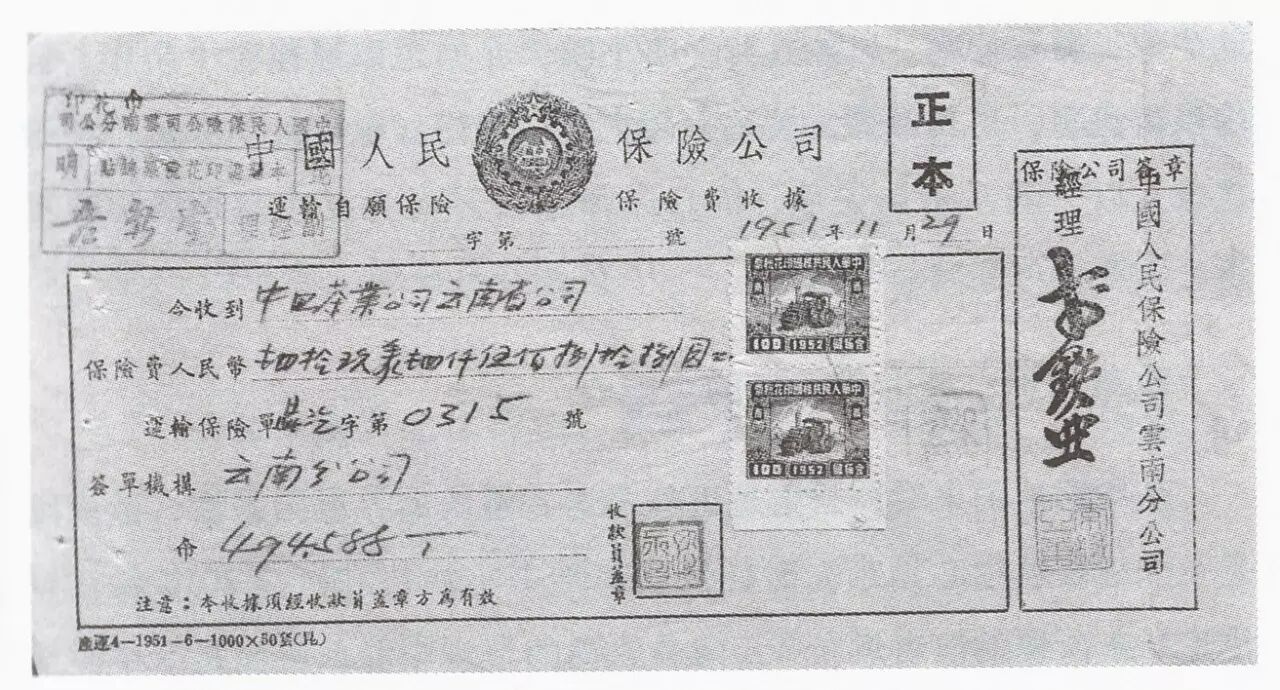 中國人民保險公司
運輸自願保險 保險費收據
正本
字第 號 1951年11月29日
今收到 中囯茶業公司云南省公司
保險費人民幣 肆拾玖萬肆仟伍佰捌拾捌圓
運輸保險單 字第0315號
簽單機構 云南分公司
494588
注意：本收據須經收款員蓋章方為有效
收款員蓋章
產運4—1951—6—1000×50
中華人民共和國印花稅票
100 1952
中華人民共和國印花稅票
100 1952
保險公司簽章
中國人民保險公司雲南分公司
經理
印花
中國人民保險公司雲南分公司